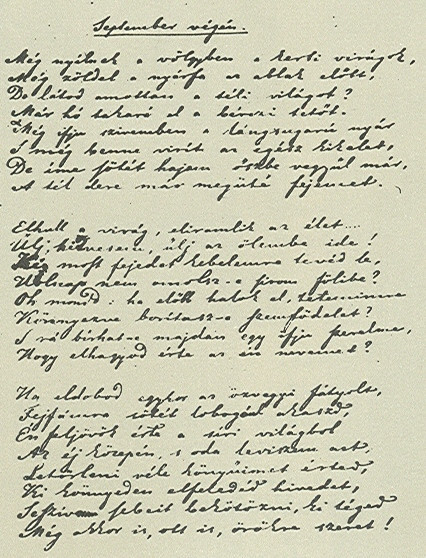 September végén.
Még nyílnak a völgyben a kerti virágok,
Még zöldel a nyárfa az ablak előtt,
De látod amottan a téli világot?
Már hó takará el a bérczi tetőt.
Még ifju szivemben a lángsugarú nyár
S még benne virít az egész kikelet,
De íme sötét hajam őszbe vegyűl már,
A tél dere már megüté fejemet.
Elhull a virág, eliramlik az élet....
Ülj hitvesem, ülj az ölembe ide!
Ki most fejedet kebelemre tevéd le,
Holnap nem omolsz-e sirom fölibe?
Oh mond: ha előbb halok el, tetemimre
Könnyezve borítasz-e szemfödelet?
S rá bírhat-e majdan egy ifju szerelme,
Hogy elhagyod érte az én nevemet?
Ha eldobod egykor az özvegyi fátyolt,
Fejfámra sötét lobogúl akaszd,
Én feljövök érte a síri világból
Az éj közepén, s oda leviszem azt,
Letörleni véle könyűimet érted,
Ki könnyeden elfeledéd hivedet,
S e szív sebeit bekötözni, ki téged
Még akkor is, ott is, örökre szeret!